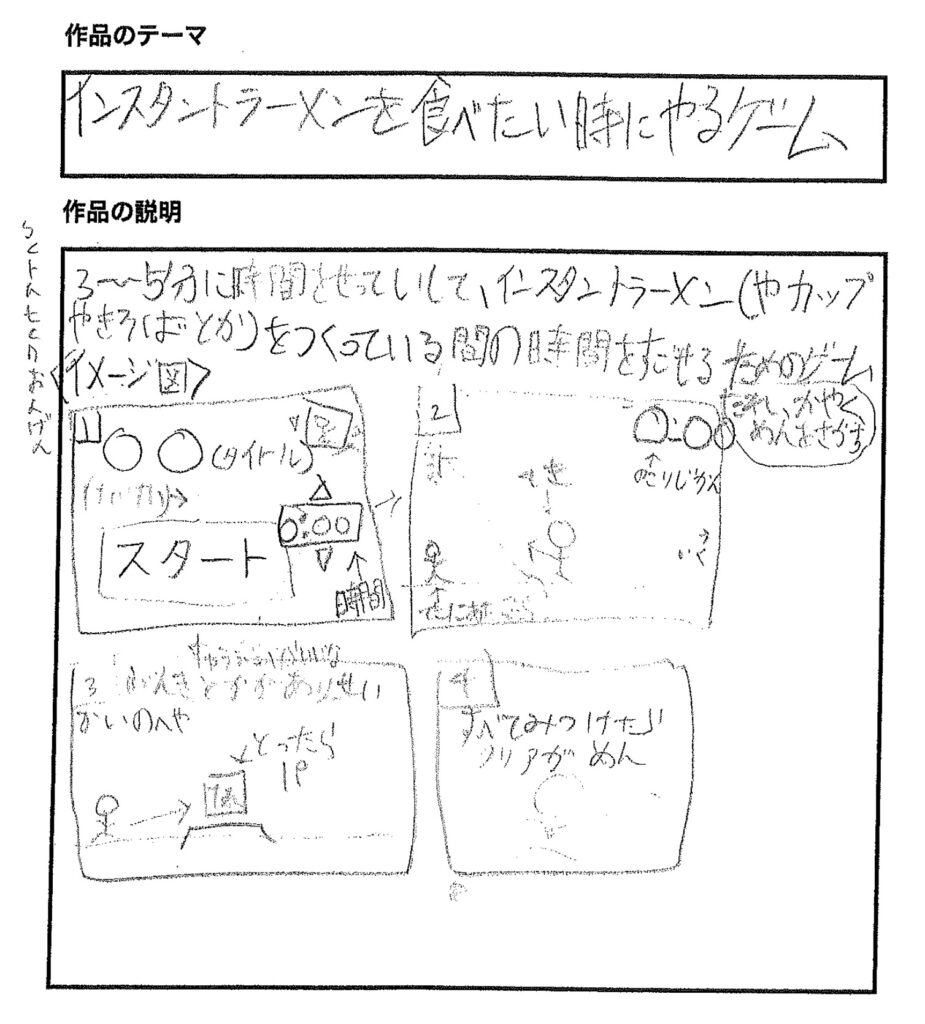 作品のテーマ
インスタントラーメンを食べたい時にやるゲーム
作品の説明
3〜5分に時間をせっていして、インスタントラーメン(やカップ
やきそばとか)をつくっている間の時間をすごせるためのゲーム
<イメージ図>
1
○○(タイトル)
スタート
0:00
時間
2
○:○○
のこりじかん
たれ、かやく
めんをさがす
てき
いく
3
とかがありせい
かいのへや
とったら
1P
4
すべてみつけたら
クリアがめん